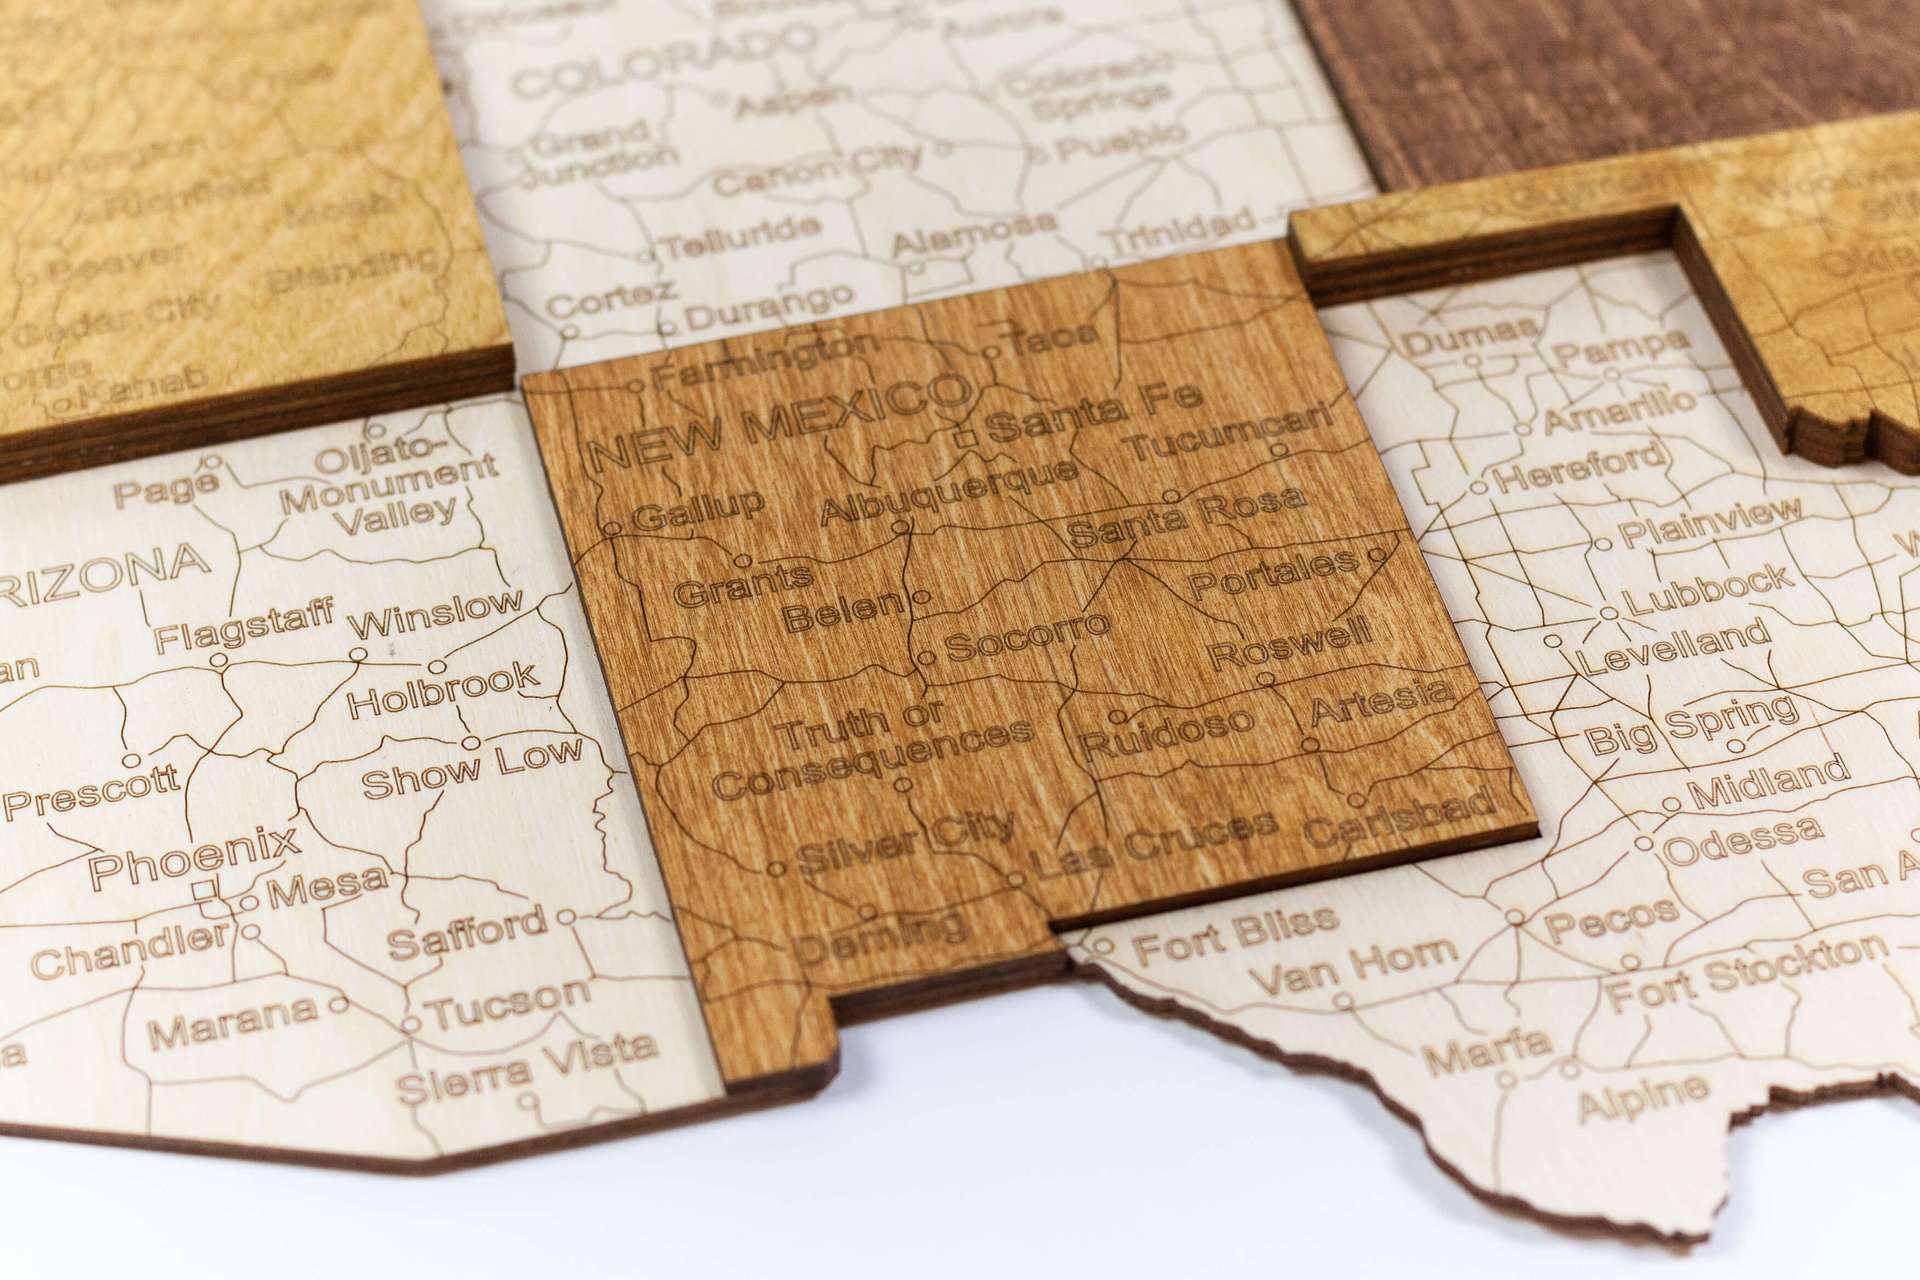 COLORADO
Aurora
Aspen
Colorado
Springs
Grand
Junction
Canon City
Pueblo
Telluride
Alamosa
Trinidad
Cortez
Durango
Huntington
Richfield
Moab
Beaver
Blanding
Cedar City
orge
Kanab
Guymon
Farmington
Taos
NEW MEXICO
Santa Fe
Tucumcari
Gallup
Albuquerque
Santa Rosa
Grants
Portales
Belen
Socorro
Roswell
Truth or
Consequences
Ruidoso
Artesia
Silver City
Las Cruces
Carlsbad
Deming
Page
Oljato-
Monument
Valley
RIZONA
Flagstaff
Winslow
an
Holbrook
Prescott
Show Low
Phoenix
Mesa
Chandler
Safford
Marana
Tucson
a
Sierra Vista
Dumas
Pampa
Amarillo
Hereford
Plainview
W
Lubbock
Levelland
Big Spring
Midland
Odessa
San A
Pecos
Fort Bliss
Van Horn
Fort Stockton
Marfa
Alpine